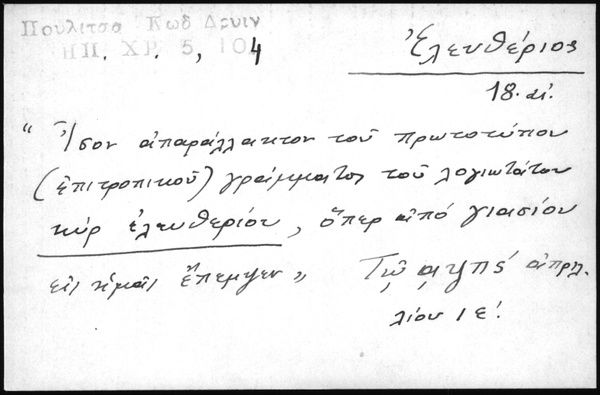 Πουλιτσα Κωδ Δρυιν
ΗΠ. ΧΡ. 5, 104
Ἐλευθέριος
18. αἰ.
"Ἴσον ἀπαράλλακτον τοῦ πρωτοτύπου
(ἐπιτροπικοῦ) γράμματος τοῦ λογιωτάτου
κὺρ ἐλευθερίου, ὅπερ ἀπό γιασίου
εἰς ἡμᾶς ἔπεμψεν" Τῷ αψπς´ ἀπρι-
λίου ιε´.